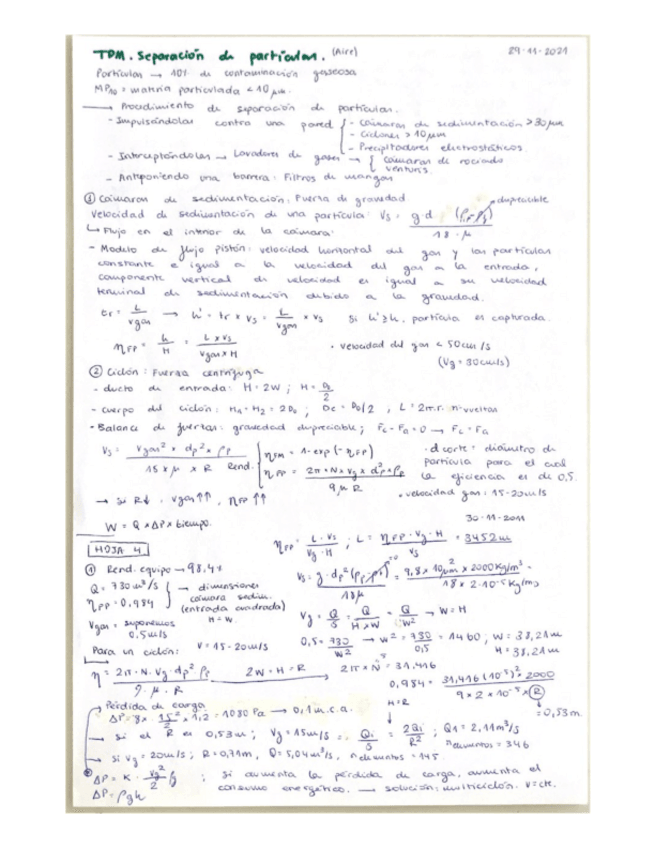 TDM. Separación de partículas. (Aire) 29-11-2021
Partículas → 10% de contaminación gaseosa
MP10 = materia particulada < 10 μm.
→ Procedimiento de separación de partículas.
- Impulsándolas contra una pared { - Cámaras de sedimentación > 30 μm
- Ciclones > 10 μm
- Precipitadores electrostáticos
- Interceptándolas → Lavadores de gases → { cámaras de rociado
venturis.
- Anteponiendo una barrera: Filtros de mangas
① Cámaras de sedimentación: Fuerza de gravedad
despreciable
Velocidad de sedimentación de una partícula: Vs = g·d (ρp-ρg) / 18·μ
↳ Flujo en el interior de la cámara:
- Modelo de flujo pistón: velocidad horizontal del gas y las partículas
constante e igual a la velocidad del gas a la entrada,
componente vertical de velocidad es igual a su velocidad
terminal de sedimentación debido a la gravedad.
tr = L / Vgas → h' = tr x Vs = L / Vgas x Vs Si h' ≥ h, partícula es capturada.
ηFP = h / H = L x Vs / Vgas x H · velocidad del gas < 50 cm/s
(Vg = 30 cm/s)
② Ciclón: Fuerza centrífuga
- ducto de entrada: H = 2W ; H = D0 / 2
- cuerpo del ciclón: H1 = H2 = 2D0 ; De = D0/2 , L = 2π·r·n vueltas
- Balance de fuerzas: gravedad depreciable; Fc - Fa = 0 → Fc = Fa
Vs = Vgas² x dp² x ρp / 18 x μ x R Rend. { ηFM = 1 - exp(-ηFP)
ηFP = 2π x N x Vg x d²p x ρp / 9μ R
· d corte: diámetro de
partícula para el cual
la eficiencia es de 0,5.
→ Si R↓, Vgas↑↑, ηFP↑↑ · velocidad gas: 15-20 m/s
W = Q x ΔP x tiempo.
30-11-2011
HOJA 4
ηFP = L·Vs / Vg·H ; L = ηFP·Vg·H / Vs = 3452 m
① Rend. equipo → 98,4%
Q = 730 m³/s
ηFP = 0,984
→ dimensiones
cámara sedim.
(entrada cuadrada)
H = W
Vgas = suponemos
0,5 m/s
Vs = g·dp²(ρp-ρf) / 18μ = 9,8 x 10² μm x 2000 Kg/m³ / 18 x 2·10⁻⁵ Kg/ms
Vg = Q / S = Q / HxW = Q / W² → W = H
0,5 = 730 / W² → W² = 730 / 0,5 = 1460 ; W = 38,21 m
H = 38,21 m
Para un ciclón: V = 15-20 m/s
η = 2π·N·Vg·dp²·ρp / 9·μ·R 2W = H = R 2π x N = 31,416
0,984 = 31,416 (10⁻⁵)² 2000 / 9 x 2 x 10⁻⁵ x R = 0,53 m.
Pérdida de carga
ΔP = 8 x 15² / 2 x 1,2 = 1080 Pa → 0,1 m.c.a.
H = R
→ si el R es 0,53 m ; Vg = 15 m/s = Qi / S = 2Qi / R² ; Q1 = 2,11 m³/s
n elementos = 346
→ si Vg = 20 m/s ; R = 0,71 m, Q = 5,04 m³/s, n elementos = 145.
ΔP = K · Vg² / 2 ρg ; Si aumenta la pérdida de carga, aumenta el
ΔP = ρgh consumo energético. → solución: multiciclón. V = cte.